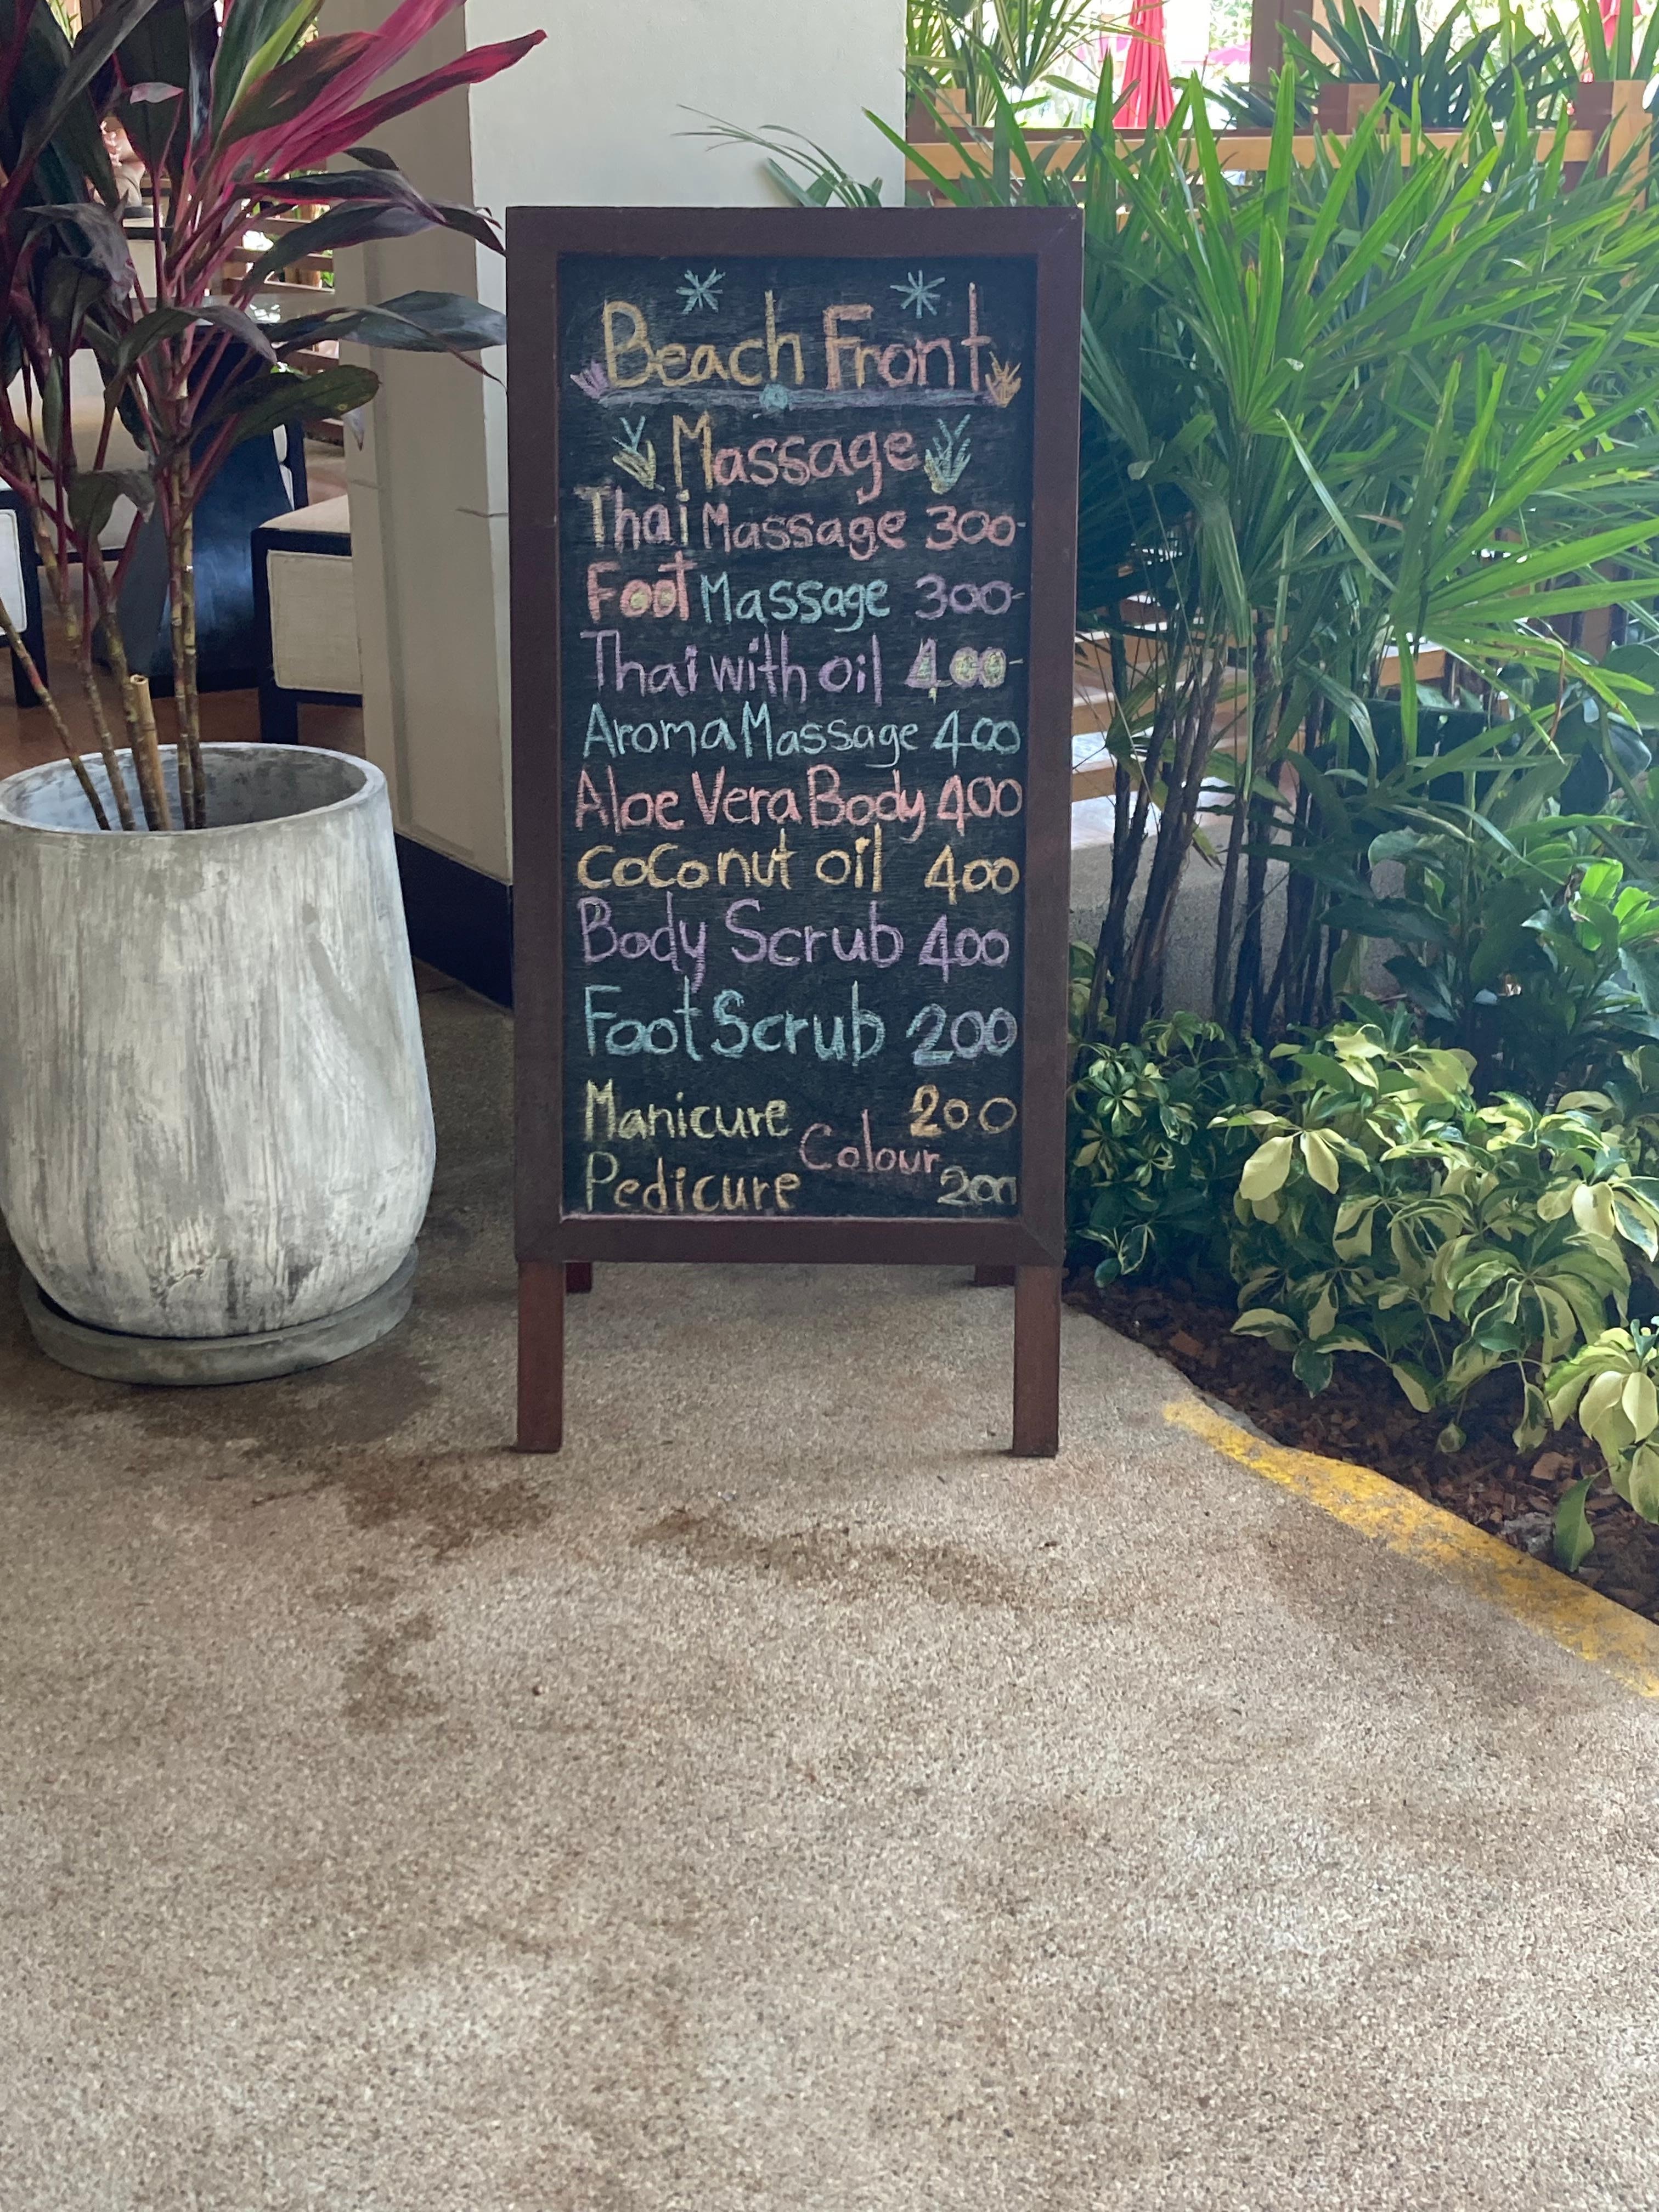 Beach Front
Massage
Thai Massage 300-
Foot Massage 300-
Thai with oil 400-
Aroma Massage 400
Aloe Vera Body 400
Coconut oil 400
Body Scrub 400
Foot Scrub 200
Manicure 200
Colour
Pedicure 200